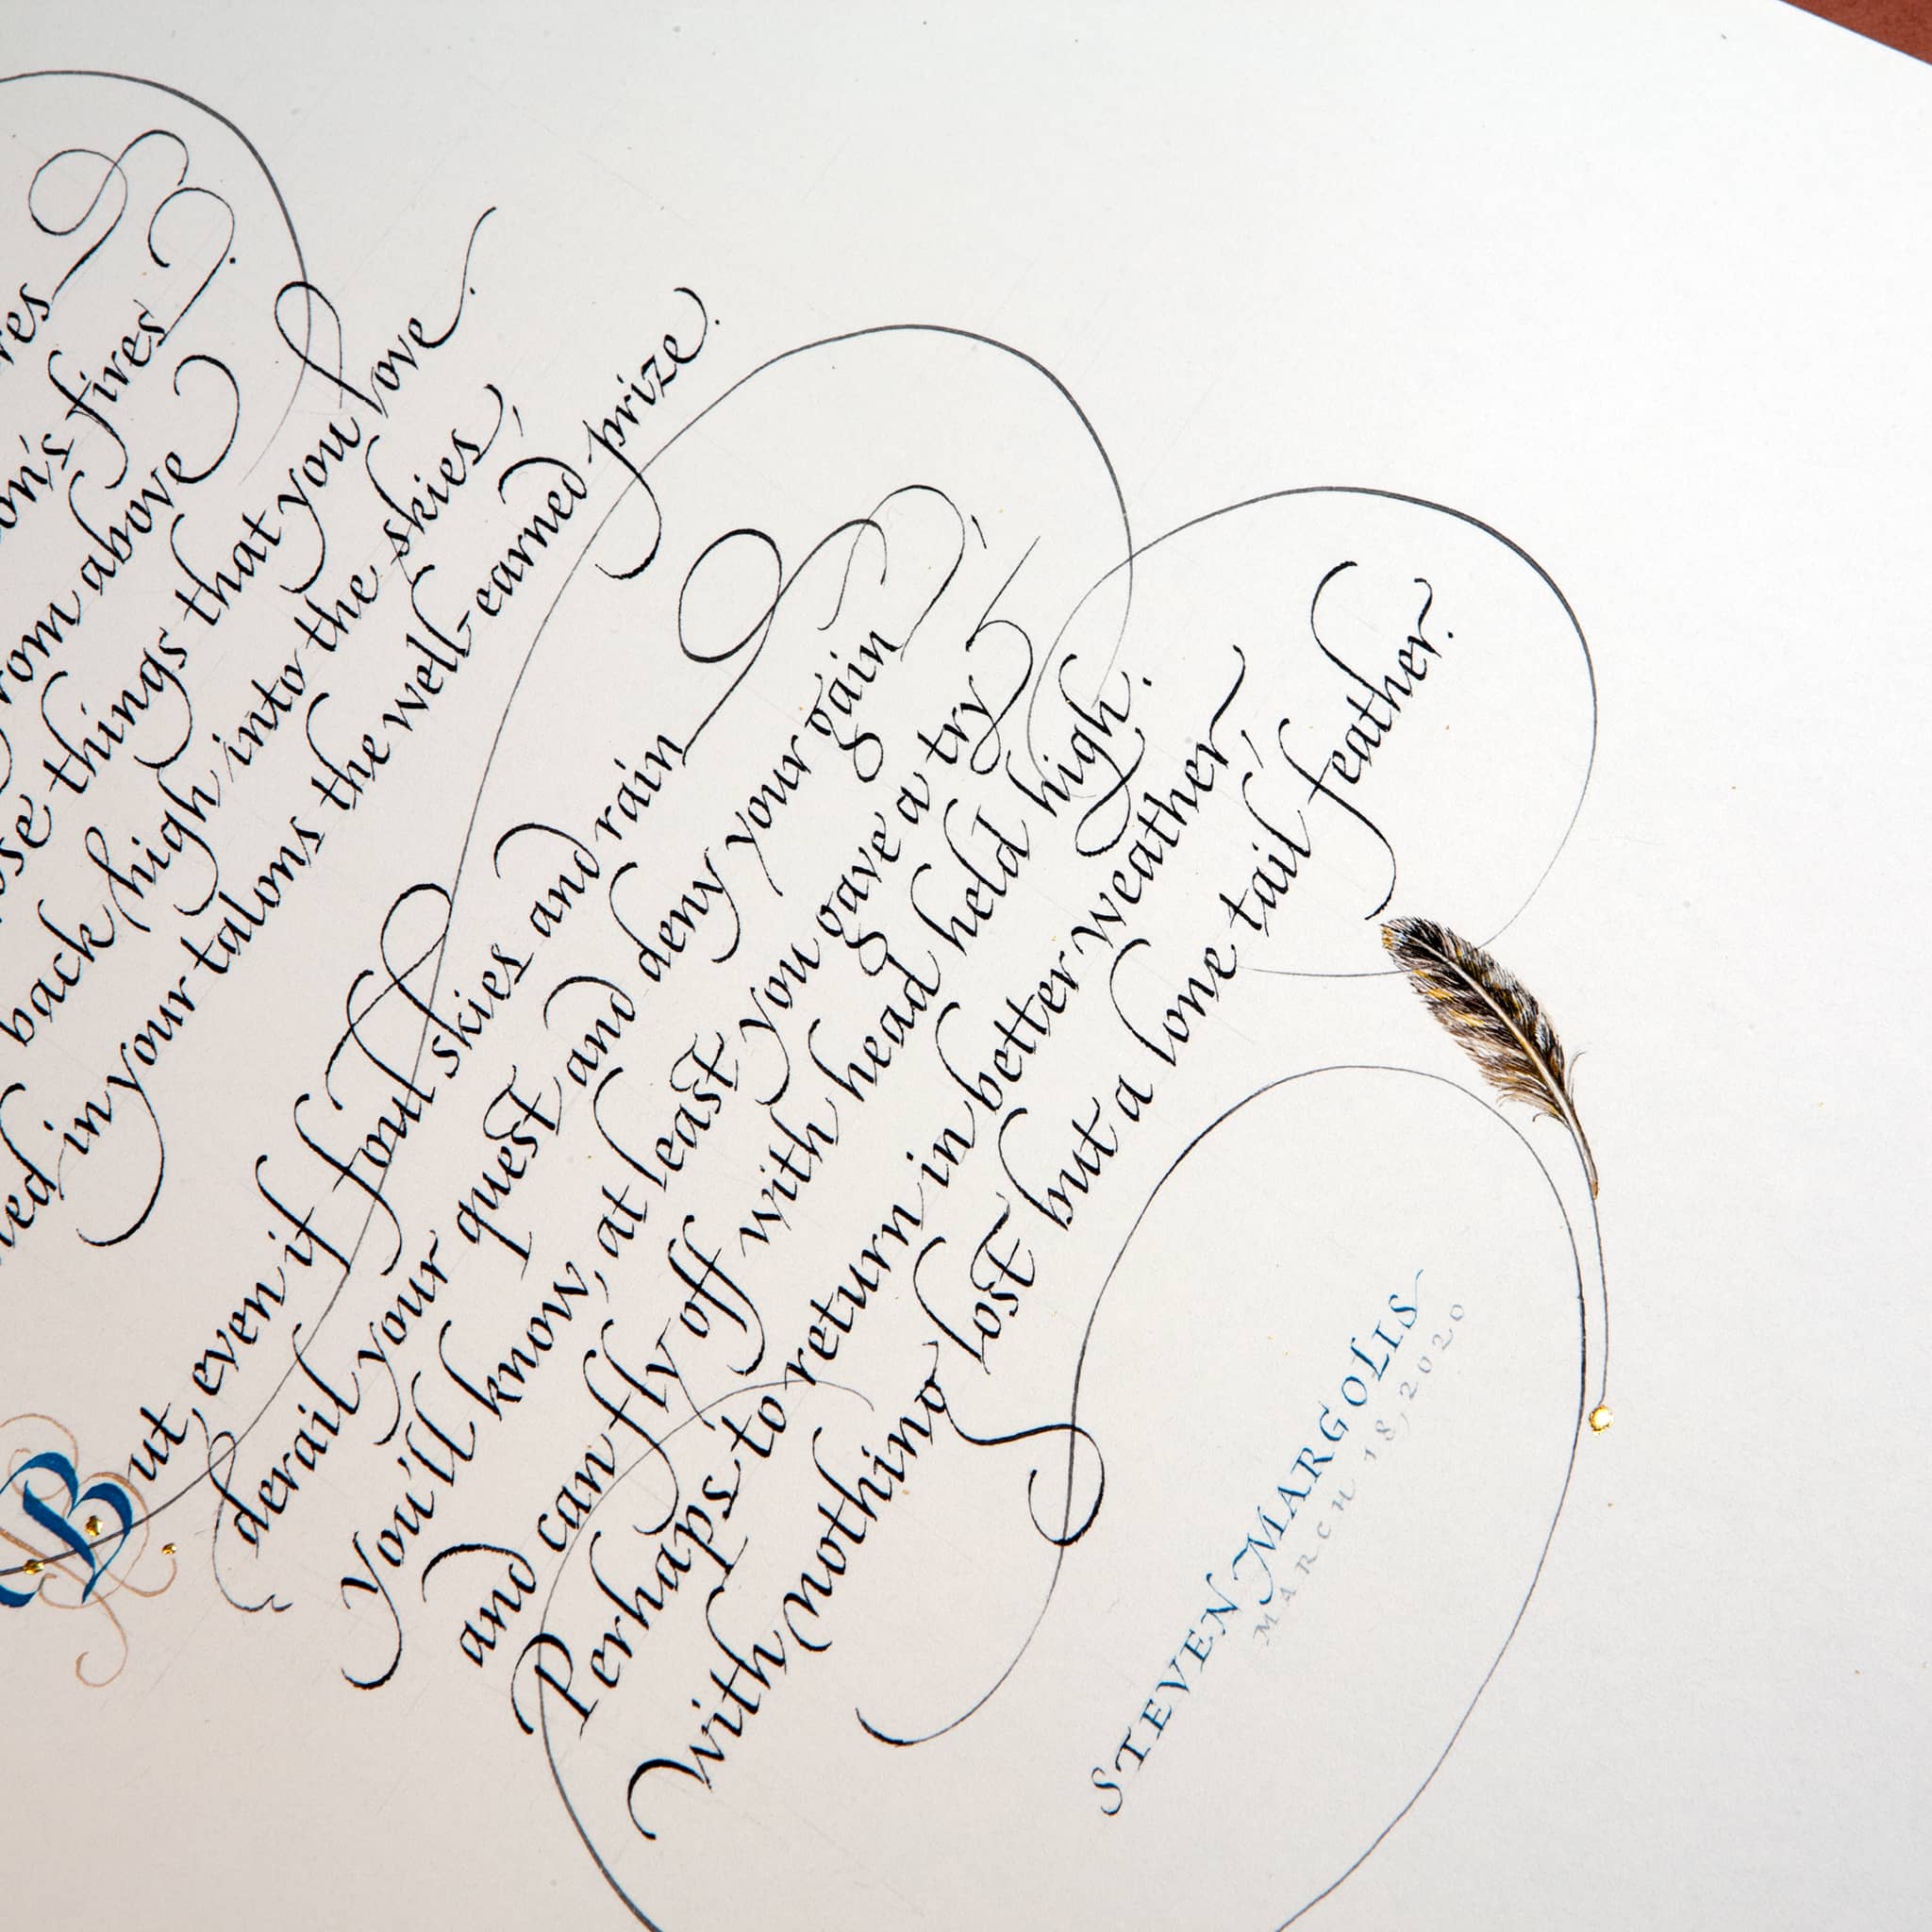 fires
above
things that you love.
back high into the skies,
in your talons the well-earned prize.
But, even if foul skies and rain
derail your quest and deny your gain,
you'll know, at least you gave a try
and can fly off with head held high.
Perhaps to return in better weather,
with nothing lost but a lone tail feather.
STEVEN MARGOLIS
MARCH 18, 2020